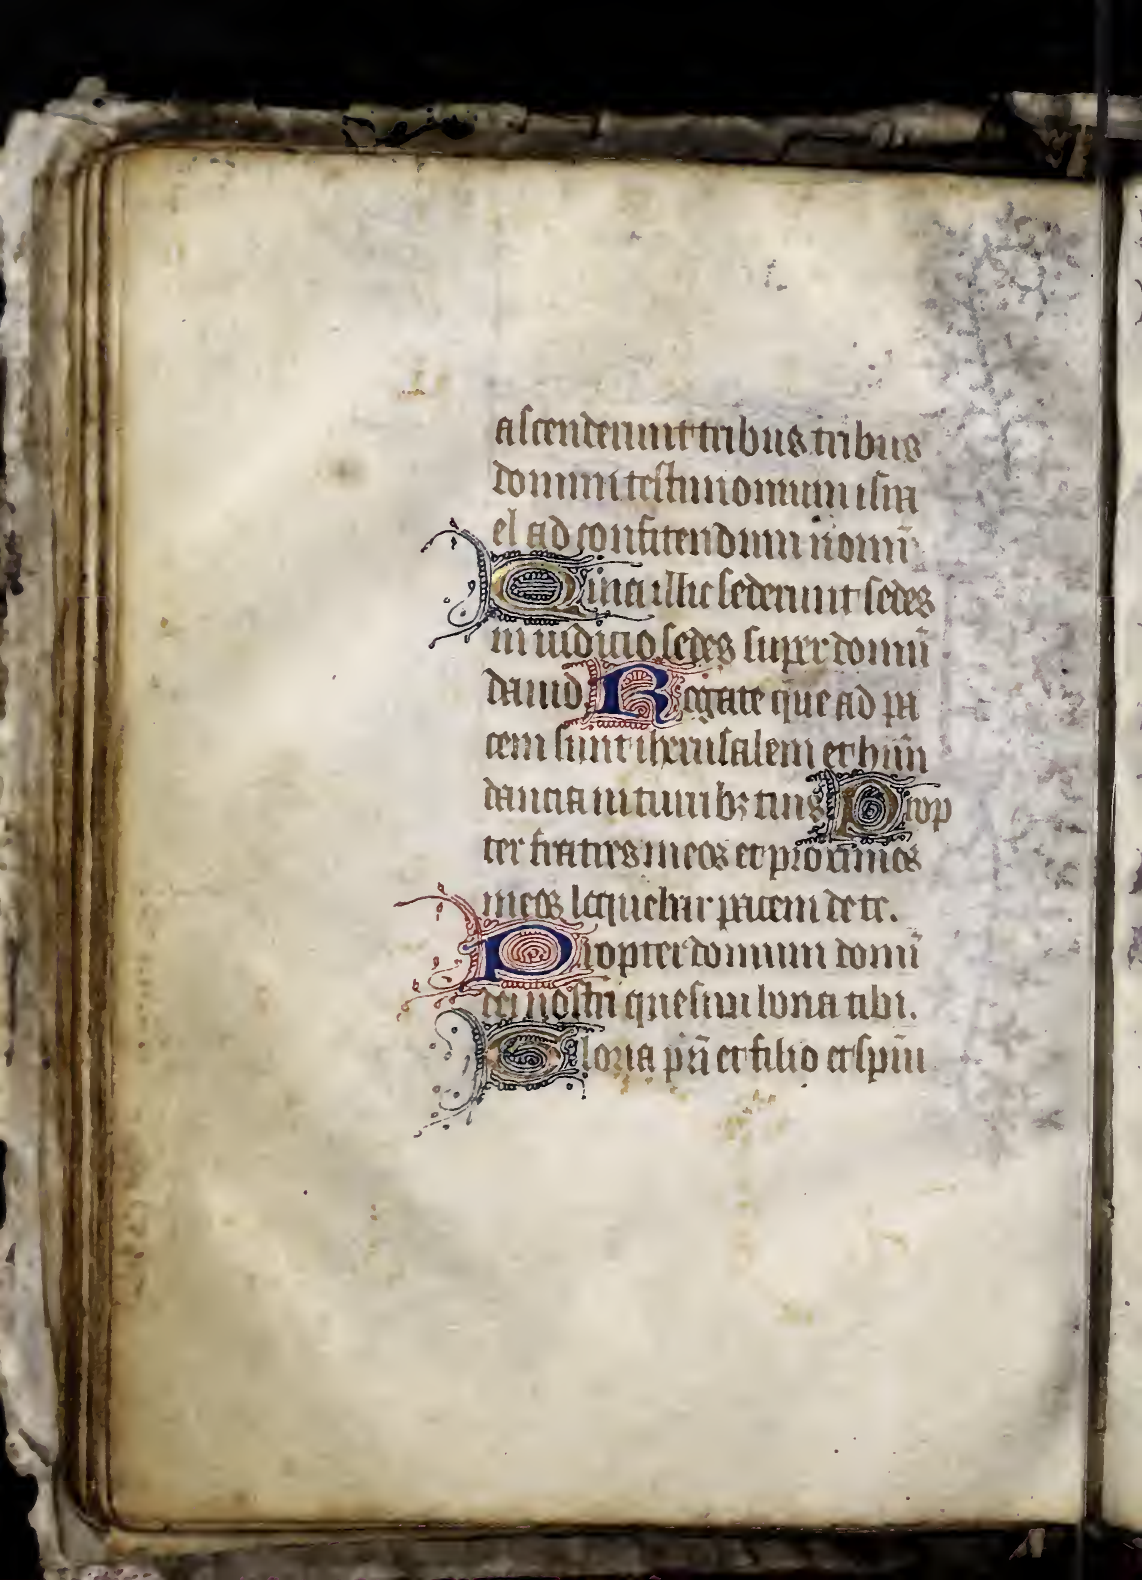 ascenderunt tribus tribus
domini testimonium isra
el ad confitendum nomī
Quia illic sederunt sedes
in iudicio sedes super domū
dauid Rogate que ad pa
cem sunt iherusalem et hūn
dancia in turribꝫ tuis Prop
ter fratres meos et proximos
meos loquebar pacem de te.
Propter domum domī
dei nostri quesiui bona tibi.
Gloria pr̄i et filio et spūi